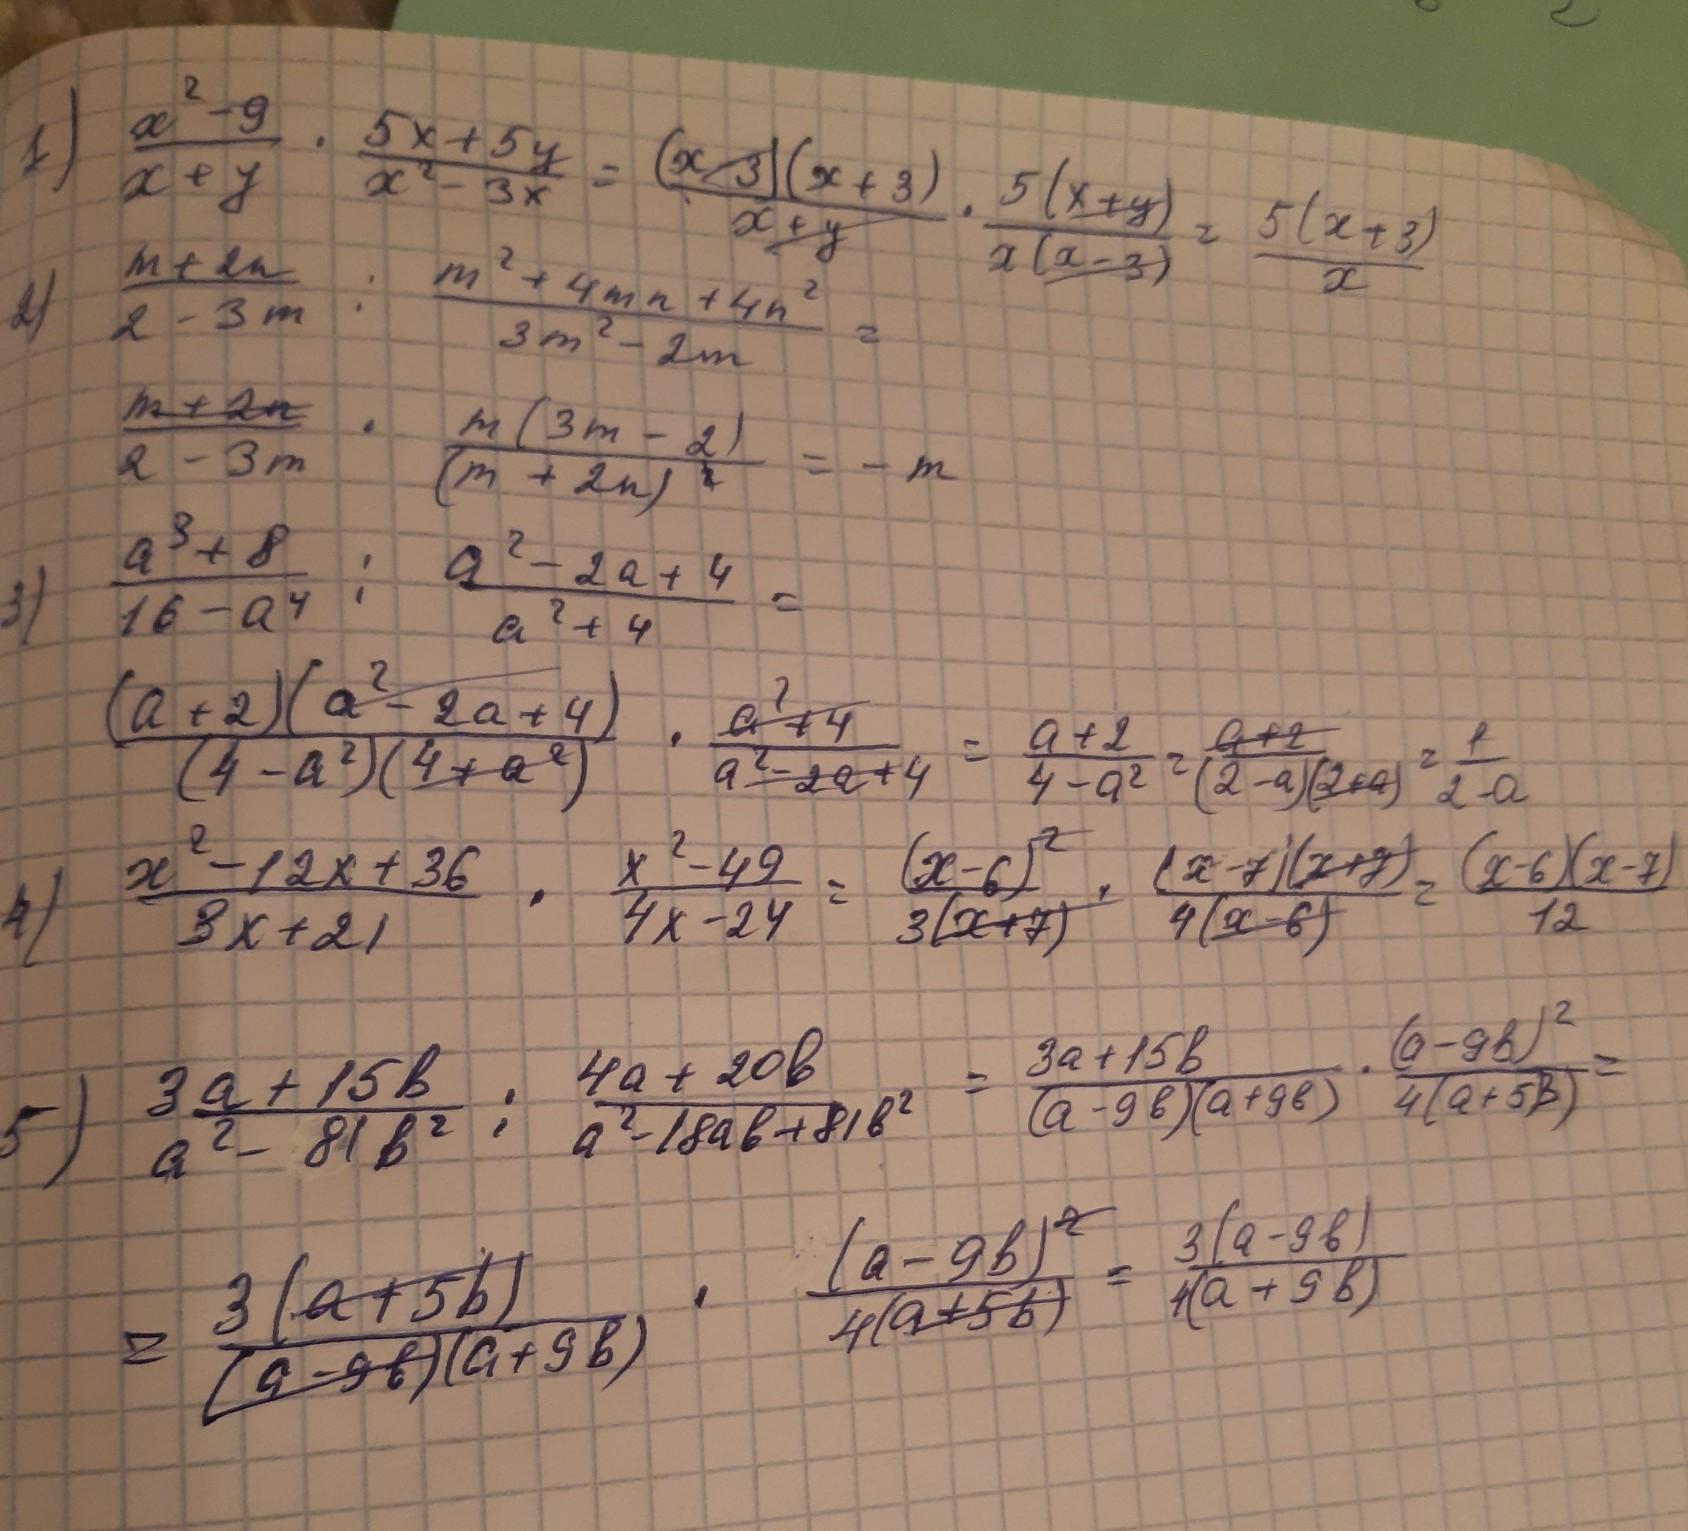 1) (x²-9)/(x+y) · (5x+5y)/(x²-3x) = ((x-3)(x+3))/(x+y) · (5(x+y))/(x(x-3)) = (5(x+3))/x
2) (m+2n)/(2-3m) : (m²+4mn+4n²)/(3m²-2m) =
(m+2n)/(2-3m) · (m(3m-2))/((m+2n)²) = -m
3) (a³+8)/(16-a⁴) : (a²-2a+4)/(a²+4) =
((a+2)(a²-2a+4))/((4-a²)(4+a²)) · (a²+4)/(a²-2a+4) = (a+2)/(4-a²) = (a+2)/((2-a)(2+a)) = 1/(2-a)
4) (x²-12x+36)/(3x+21) · (x²-49)/(4x-24) = ((x-6)²)/(3(x+7)) · ((x-7)(x+7))/(4(x-6)) = ((x-6)(x-7))/12
5) (3a+15b)/(a²-81b²) : (4a+20b)/(a²-18ab+81b²) = (3a+15b)/((a-9b)(a+9b)) · ((a-9b)²)/(4(a+5b)) =
= (3(a+5b))/((a-9b)(a+9b)) · ((a-9b)²)/(4(a+5b)) = (3(a-9b))/(4(a+9b))